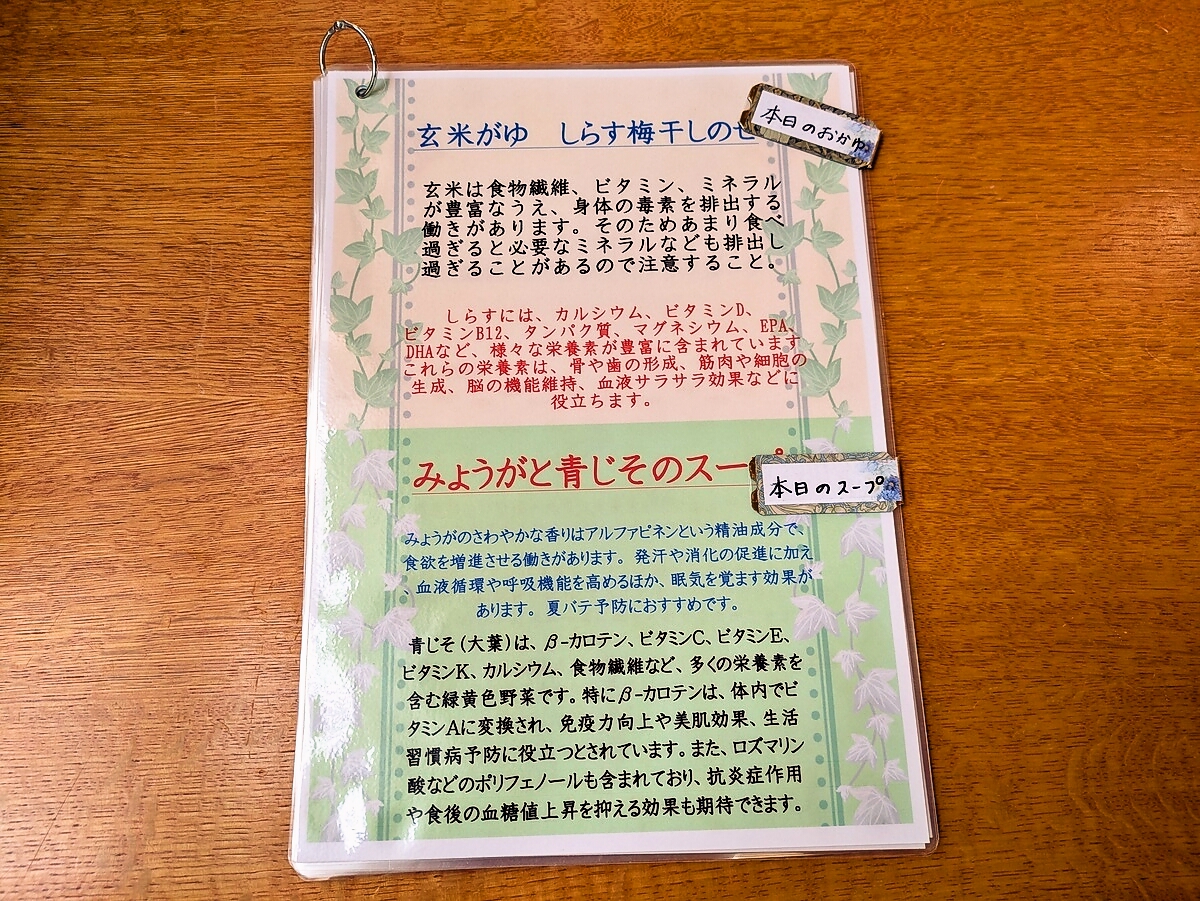 玄米がゆ しらす梅干しのせ
本日のおかゆ
玄米は食物繊維、ビタミン、ミネラル
が豊富なうえ、身体の毒素を排出する
働きがあります。そのためあまり食べ
過ぎると必要なミネラルなども排出し
過ぎることがあるので注意すること。
しらすには、カルシウム、ビタミンD、
ビタミンB12、タンパク質、マグネシウム、EPA、
DHAなど、様々な栄養素が豊富に含まれています
これらの栄養素は、骨や歯の形成、筋肉や細胞の
生成、脳の機能維持、血液サラサラ効果などに
役立ちます。
みょうがと青じそのスープ
本日のスープ
みょうがのさわやかな香りはアルファピネンという精油成分で、
食欲を増進させる働きがあります。発汗や消化の促進に加え
、血液循環や呼吸機能を高めるほか、眠気を覚ます効果が
あります。夏バテ予防におすすめです。
青じそ(大葉)は、β-カロテン、ビタミンC、ビタミンE、
ビタミンK、カルシウム、食物繊維など、多くの栄養素を
含む緑黄色野菜です。特にβ-カロテンは、体内でビ
タミンAに変換され、免疫力向上や美肌効果、生活
習慣病予防に役立つとされています。また、ロズマリン
酸などのポリフェノールも含まれており、抗炎症作用
や食後の血糖値上昇を抑える効果も期待できます。